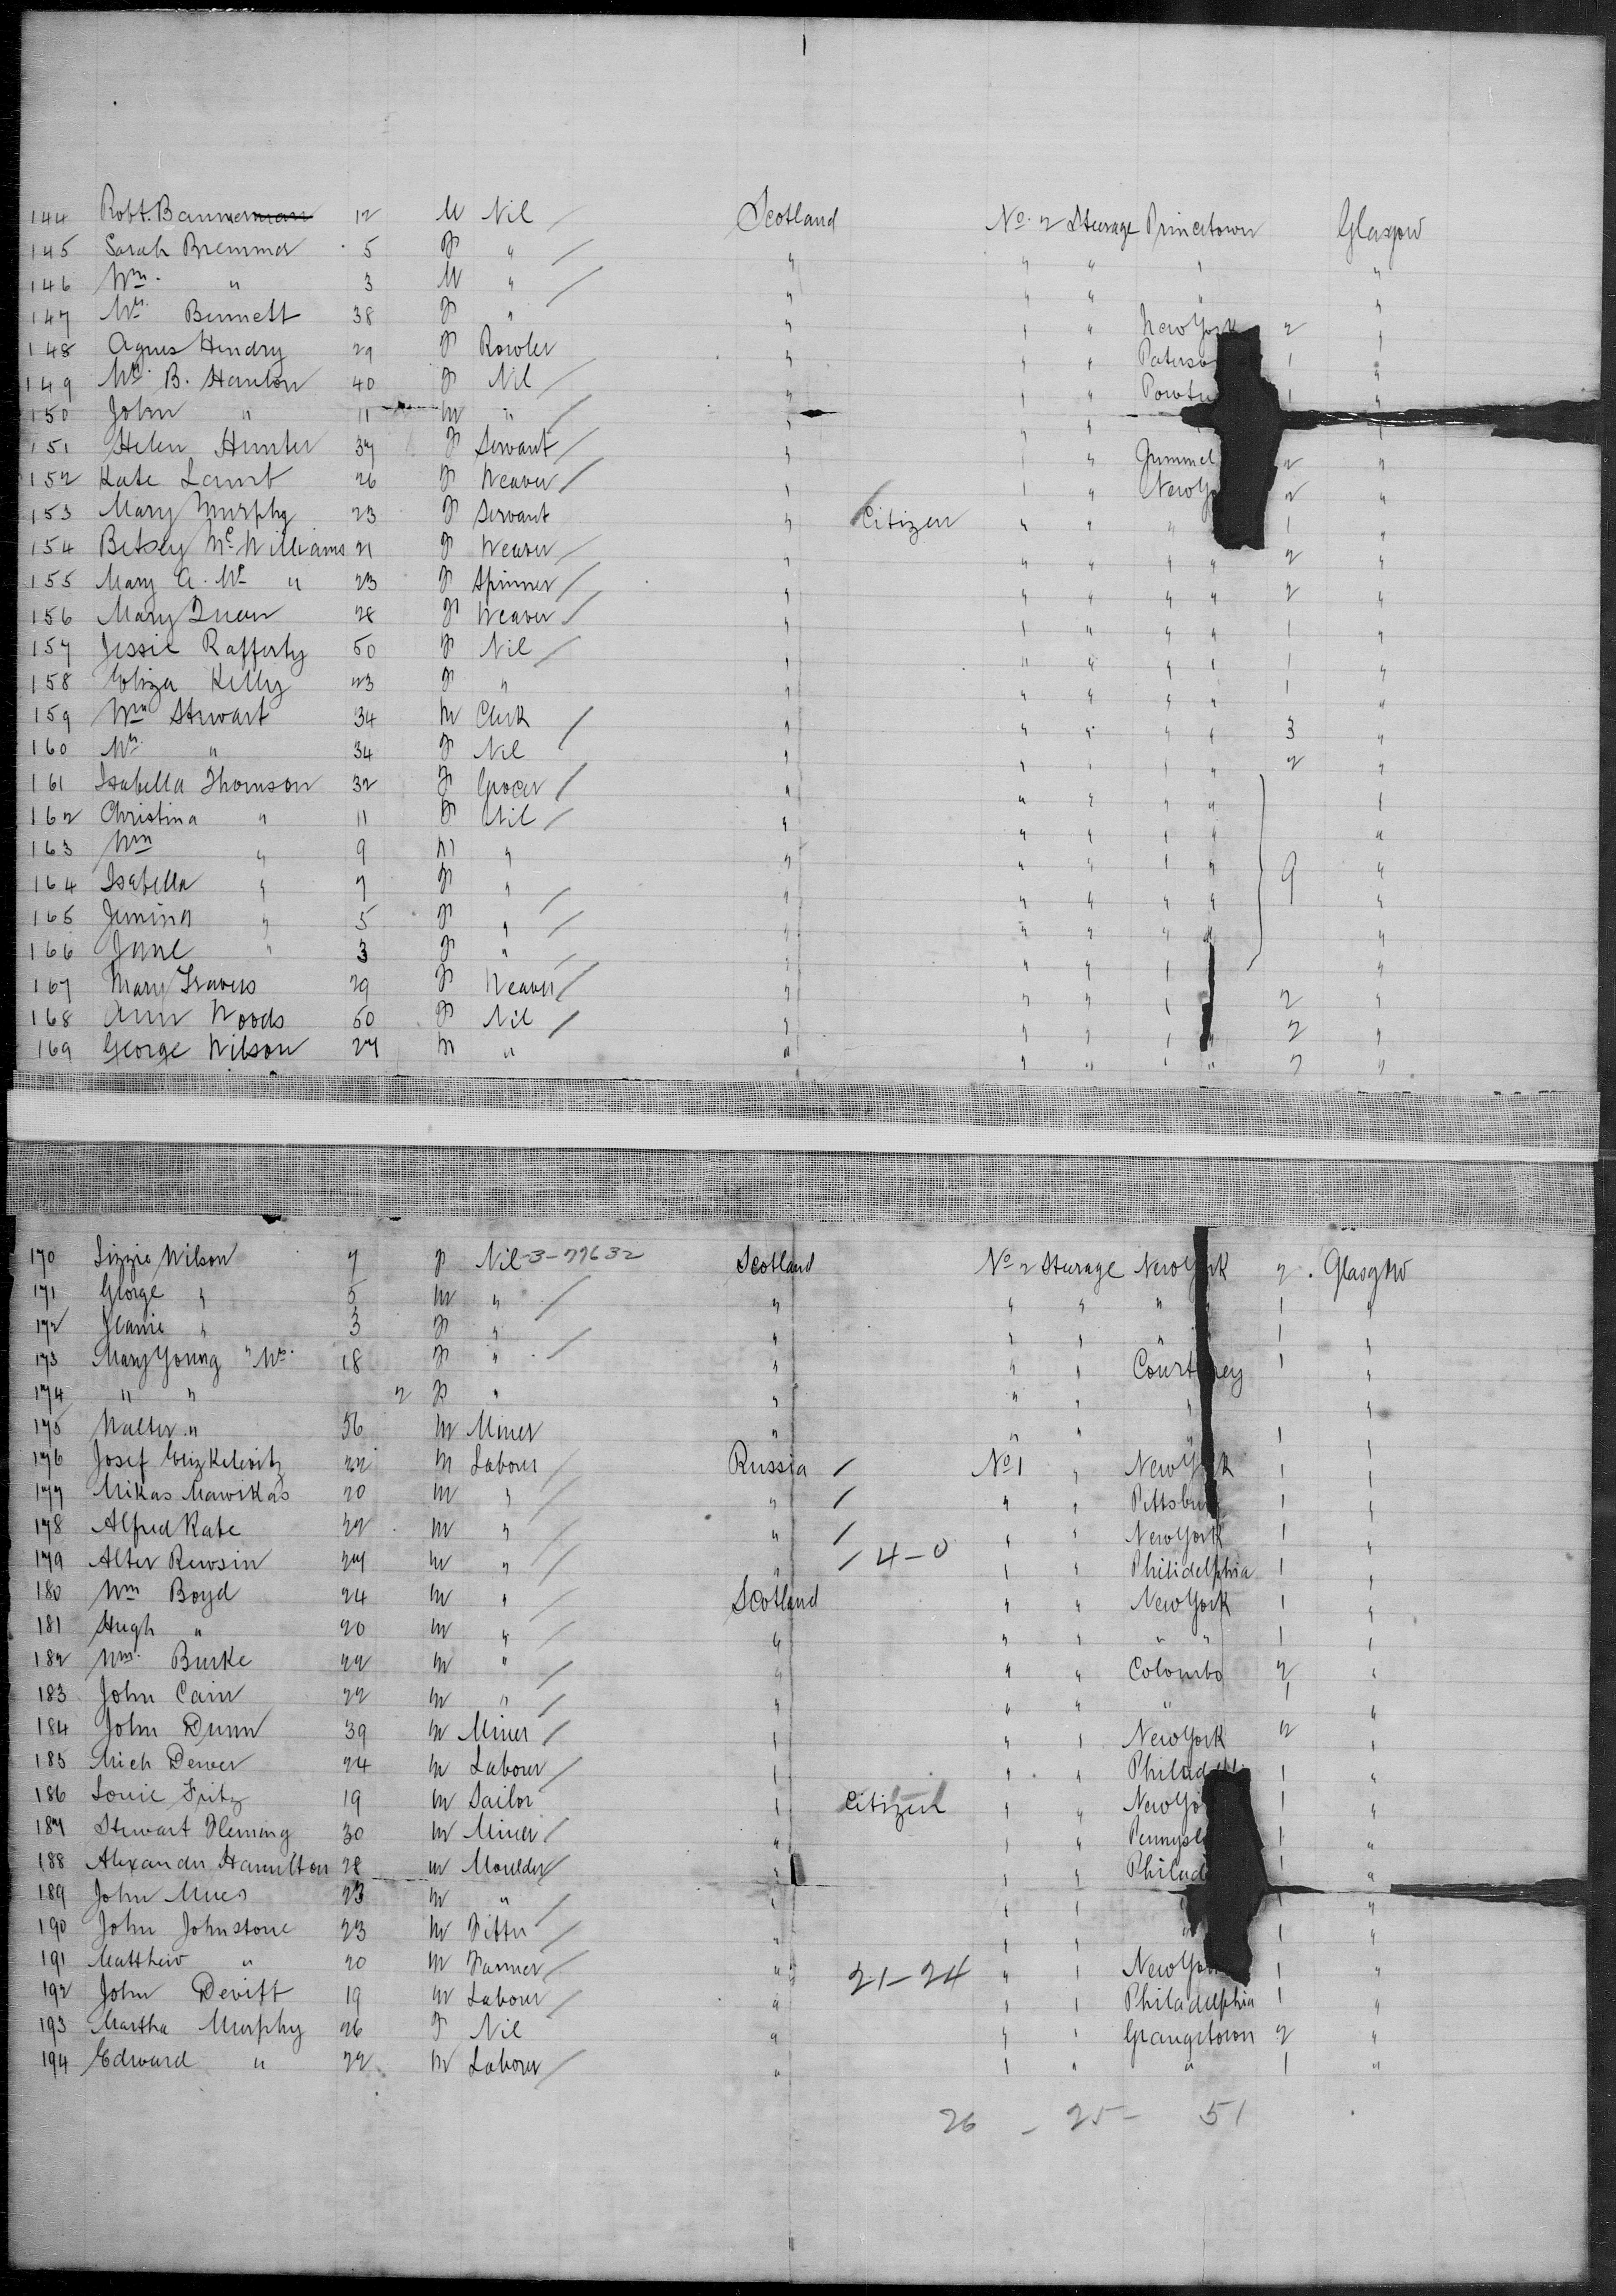 144 Robt. Bannerman 12 M Nil / Scotland No. 2 Steerage Princetown Glasgow
145 Sarah Bremmer 5 F " / " " " " "
146 Wm. " 3 M " / " " " " "
147 Mrs. Bennett 38 F " " " " New York 2 "
148 Agnes Hendry 29 F " " " Paterso 1 "
149 Mrs. B. Hanlon 40 F Nil / " " " 1 "
150 John " 11 M " / " " " "
151 Helen Hunter 37 F Servant / " " " 2 "
152 Kate Lamb 26 F Weaver / " " " New Yo 2 "
153 Mary Murphy 23 F Servant " Citizen " " " 1 "
154 Betsey McWilliams 21 F Weaver / " " " " " 2 "
155 Mary A. Mc " 23 F Spinner / " " " " " 2 "
156 Mary 28 F Weaver / " " " " " 1 "
157 Jessie Rafferty 50 F Nil / " " " " " 1 "
158 Eliza Kelly 23 F " " " " " " 1 "
159 Wm Stewart 34 M Clerk / " " " " " 3 "
160 Mrs. " 34 F Nil " " " " " 2 "
161 Isabella Thomson 32 F Grocer / " " " " " "
162 Christina " 11 F Nil / " " " " " "
163 Wm " 9 M " " " " " " "
164 Isabella " 7 F " / " " " " " 9 "
165 Jemina " 5 F " / " " " " " "
166 Jane " 3 F " / " " " " "
167 Mary Travers 29 F Weaver / " " " " 2 "
168 Ann Woods 50 F Nil / " " " " " 2 "
169 George Wilson 27 M " " " " " " 2 "
170 Lizzie Wilson 7 F Nil -3-77632 Scotland No 2 Steerage New York 2 . Glasgow
171 George " 5 M " / " " " " " 1 "
172 Jeanie " 3 F " " " " " 1 "
173 Mary Young " Mrs. 18 F " / " " " Courtney 1 "
174 " " 2 F " " " " " "
175 Walter " 56 M Miner " " " " 1 "
176 Josef 22 M Labourer / Russia / No 1 " New York 1 "
177 Mikas Mawikas 20 M " / " / " " Pittsbur 1 "
178 Alfred Kate 22 M " / " / " " New York 1 "
179 Alter Rewsin 27 M " / " / 4-0 " " Philidelphia 1 "
180 Wm Boyd 24 M " / Scotland " " New York 1 "
181 Hugh " 20 M " / " " " " " 1 "
182 Wm. Burke 22 M " / " " " Colombo 2 "
183 John Cain 22 M " / " " " " 1 "
184 John Dunn 39 M Miner / " " " New York 2 "
185 Mich Dever 24 M Labourer / " " " Philad 1 "
186 Louie Fritz 19 M Sailor " Citizen " " New Yo 1 "
187 Stewart Fleming 30 M Miner / " " " Pennysl 1 "
188 Alexander Hamilton 28 M Moulder / " " " Philad 1 "
189 John 23 M " / " " " 1 "
190 John Johnstone 23 M Fitter / " " " " 1 "
191 Matthew " 20 M Farmer / " 21-24 " " New Yo 1 "
192 John Devitt 19 M Labourer / " " " Philadelphia 1 "
193 Martha Murphy 26 F Nil " " " Grangetown 2 "
194 Edward " 22 M Labourer / " " " " 1 "
26 - 25 - 51